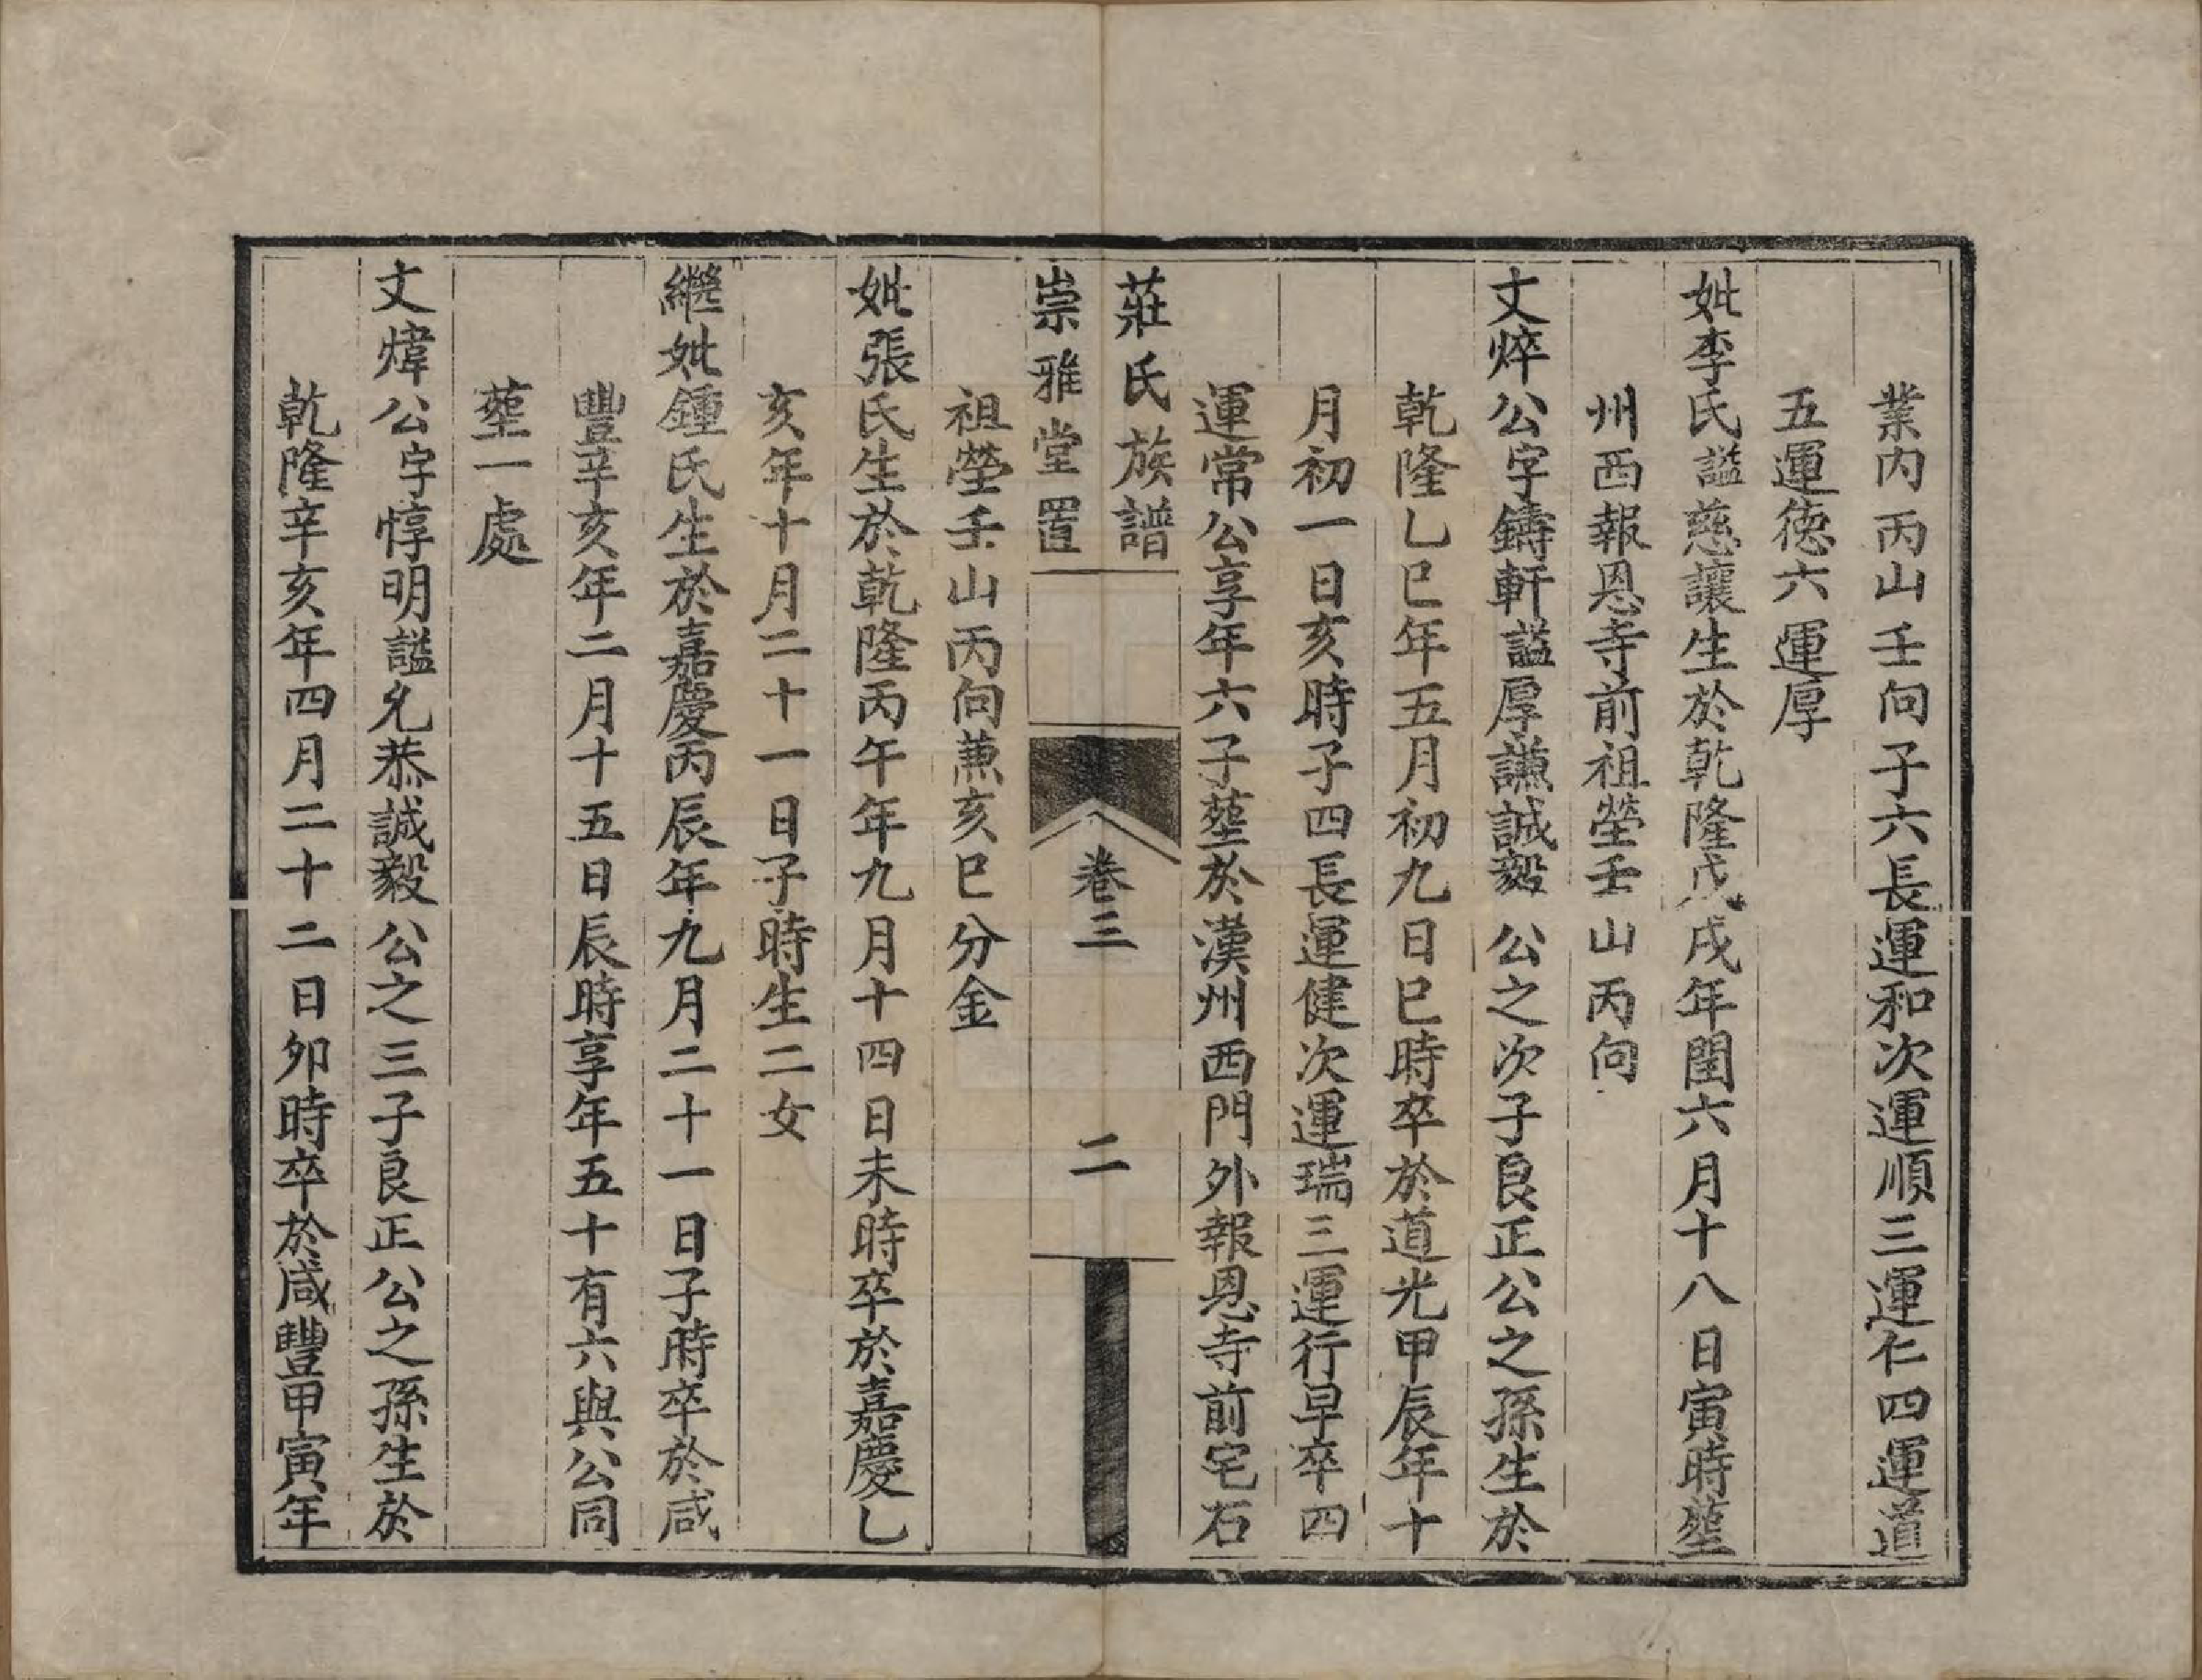 業内丙山壬向子六長運和次運順三運仁四運道
五運德六運厚
妣李氏諡慈讓生於乾隆戊戌年閏六月十八日寅時塟
州西報恩寺前祖塋壬山丙向
文焠公字鑄軒諡厚謙誠毅公之次子良正公之孫生於
乾隆乙巳年五月初九日巳時卒於道光甲辰年十
月初一日亥時子四長運健次運瑞三運行早卒四
運常公享年六子塟於漢州西門外報恩寺前宅石
莊氏族譜
卷三
二
崇雅堂置
祖塋壬山丙向兼亥巳分金
妣張氏生於乾隆丙午年九月十四日未時卒於嘉慶乙
亥年十月二十一日子時生二女
繼妣鍾氏生於嘉慶丙辰年九月二十一日子時卒於咸
豐辛亥年二月十五日辰時享年五十有六與公同
塟一處
文煒公字惇明諡允恭誠毅公之三子良正公之孫生於
乾隆辛亥年四月二十二日夘時卒於咸豐甲寅年